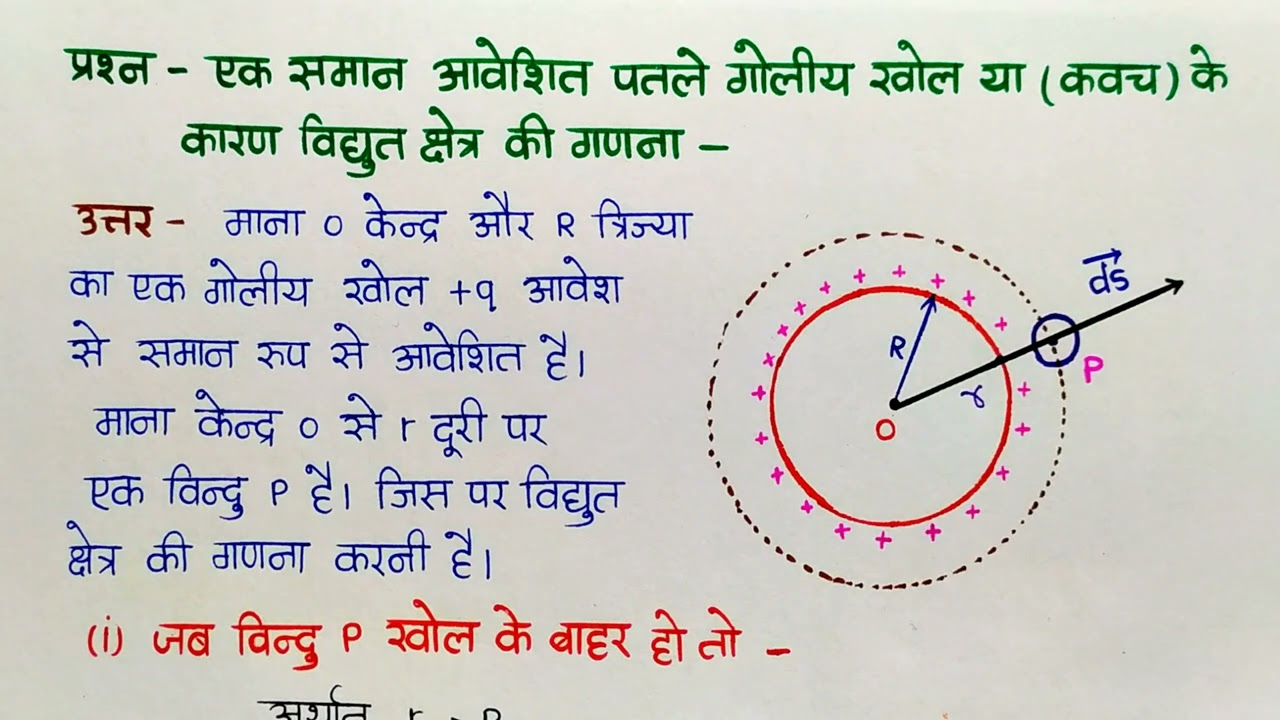 प्रश्न - एक समान आवेशित पतले गोलीय खोल या (कवच) के
कारण विद्युत क्षेत्र की गणना -
उत्तर - माना O केन्द्र और R त्रिज्या
का एक गोलीय खोल +q आवेश
से समान रुप से आवेशित है।
माना केन्द्र O से r दूरी पर
एक विन्दु P है। जिस पर विद्युत
क्षेत्र की गणना करनी है।
(i) जब विन्दु P खोल के बाहर हो तो -
अर्थात r
ds
P
R
r
O